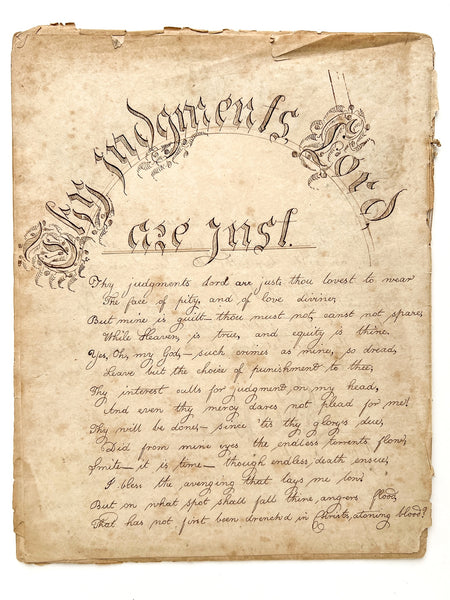 Thy judgments, Lord,
are just.
Thy judgments Lord are just; thou lovest to wear
The face of pity, and of love divine;
But mine is guilt— thou must not, canst not spare,
While Heaven, is true, and equity is thine.
Yes, Oh, my God,— such crimes as mine, so dread,
Leave but the choice of punishment to thee;
Thy interest calls for judgment, on my head,
And even thy mercy dares not plead for me!
Thy will be done,— since 'tis thy glorys due,
Did from mine eyes the endless torrents flow;
Smite— it is time— though endless death ensue,
I bless the avenging that lays me low.
But on what spot shall fall thine, angers flood,
That has not first been drenched in Christs, atoning blood?